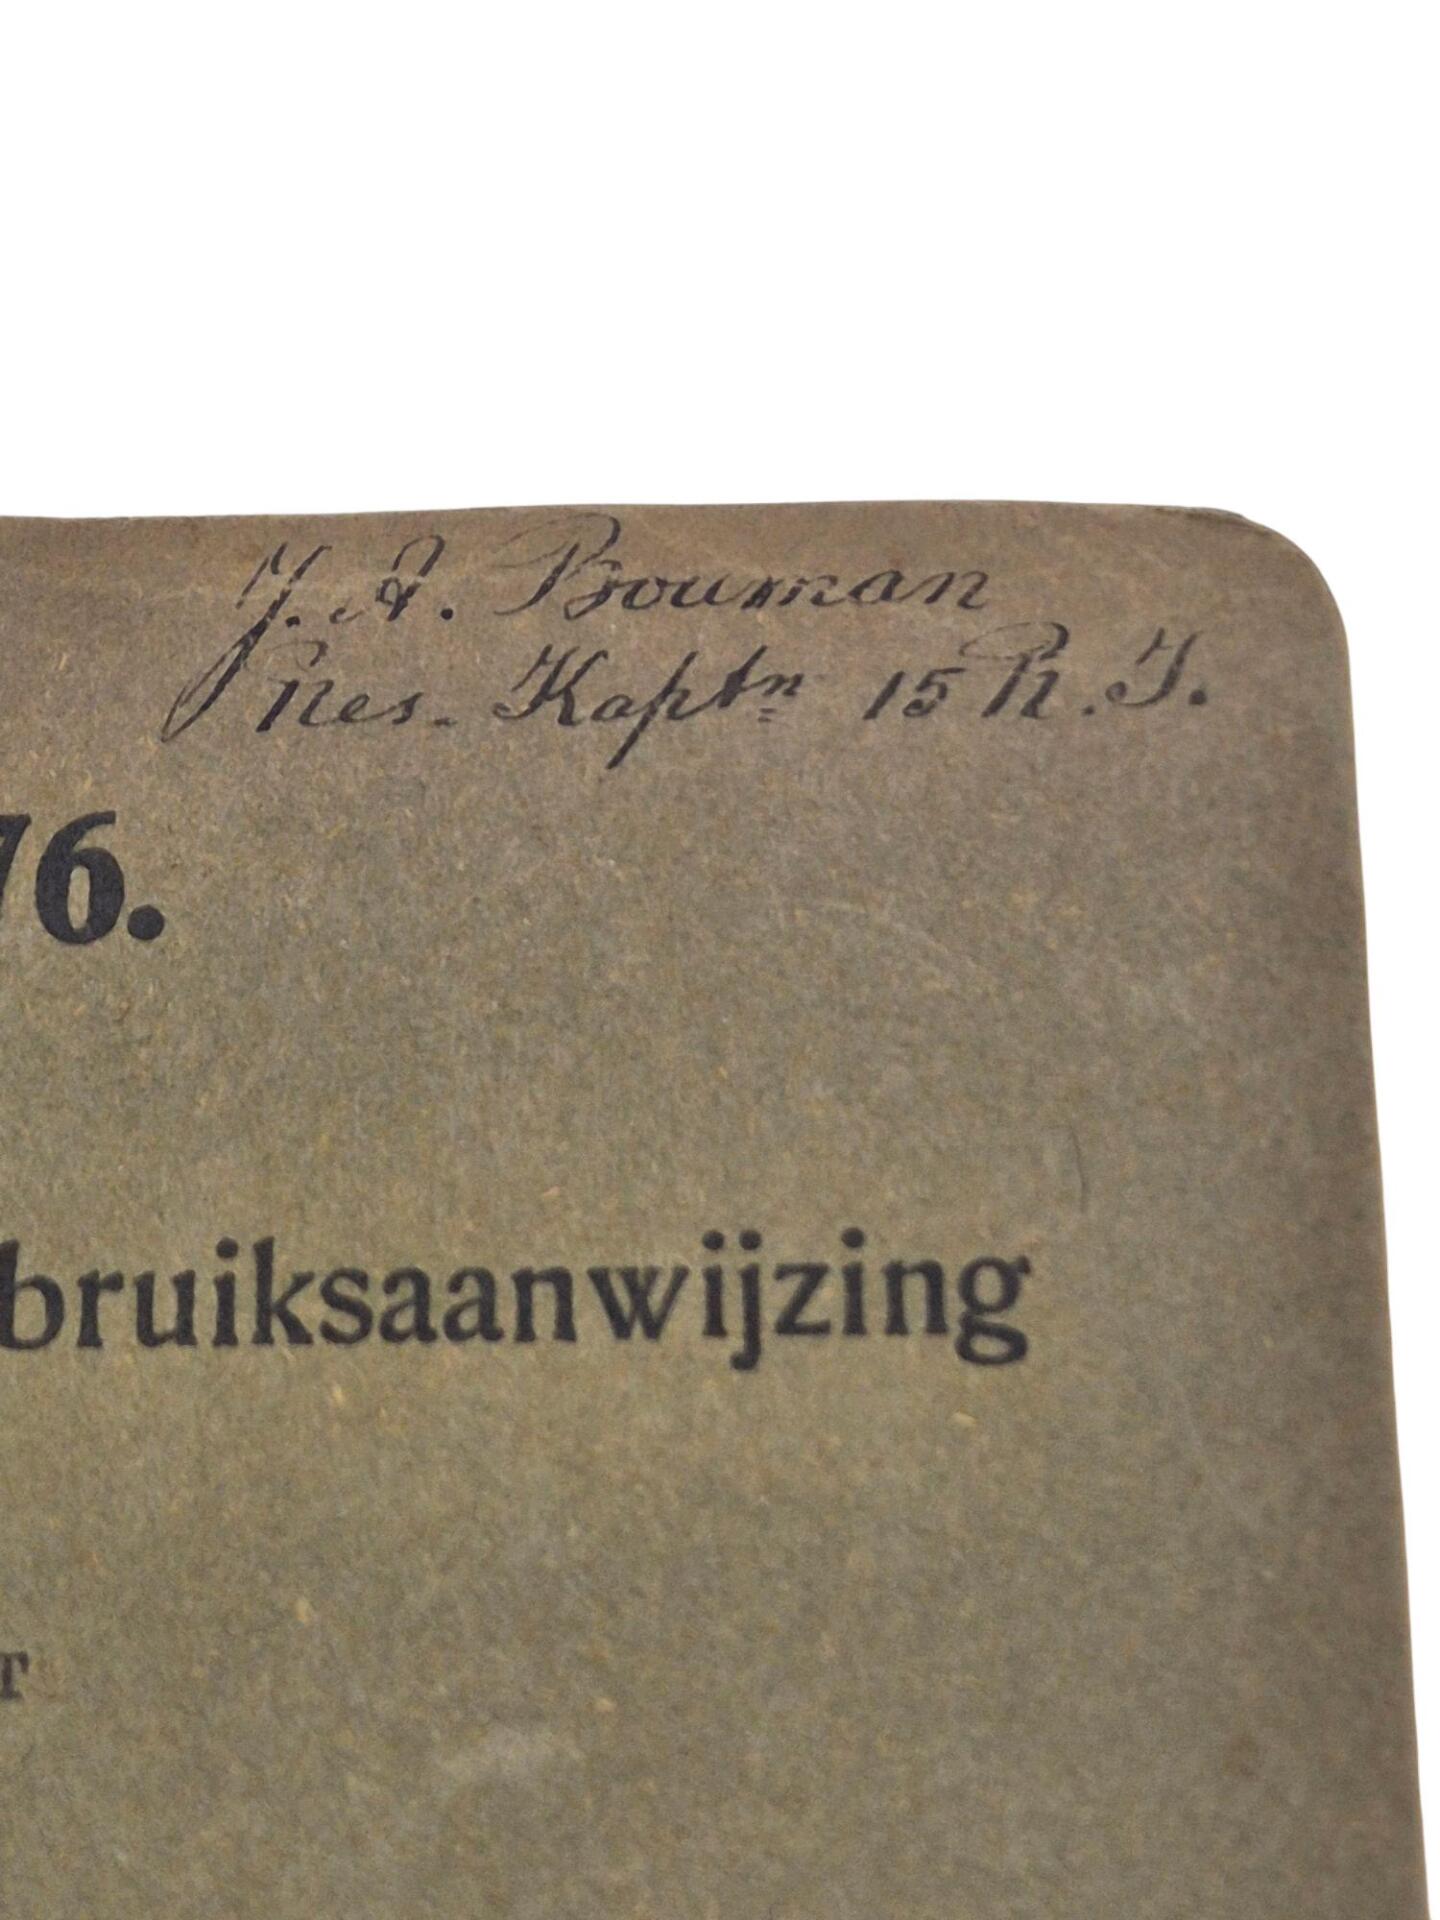 J. A. Bouman
Res. Kaptn 15 R. I.
76.
bruiksaanwijzing
T